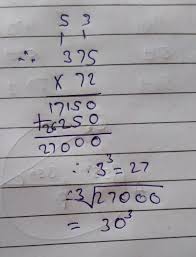 5 3
1 1
∴ 375
x 72
17150
+26250
27000
∴ 3³ = 27
-3√27000
= 30³